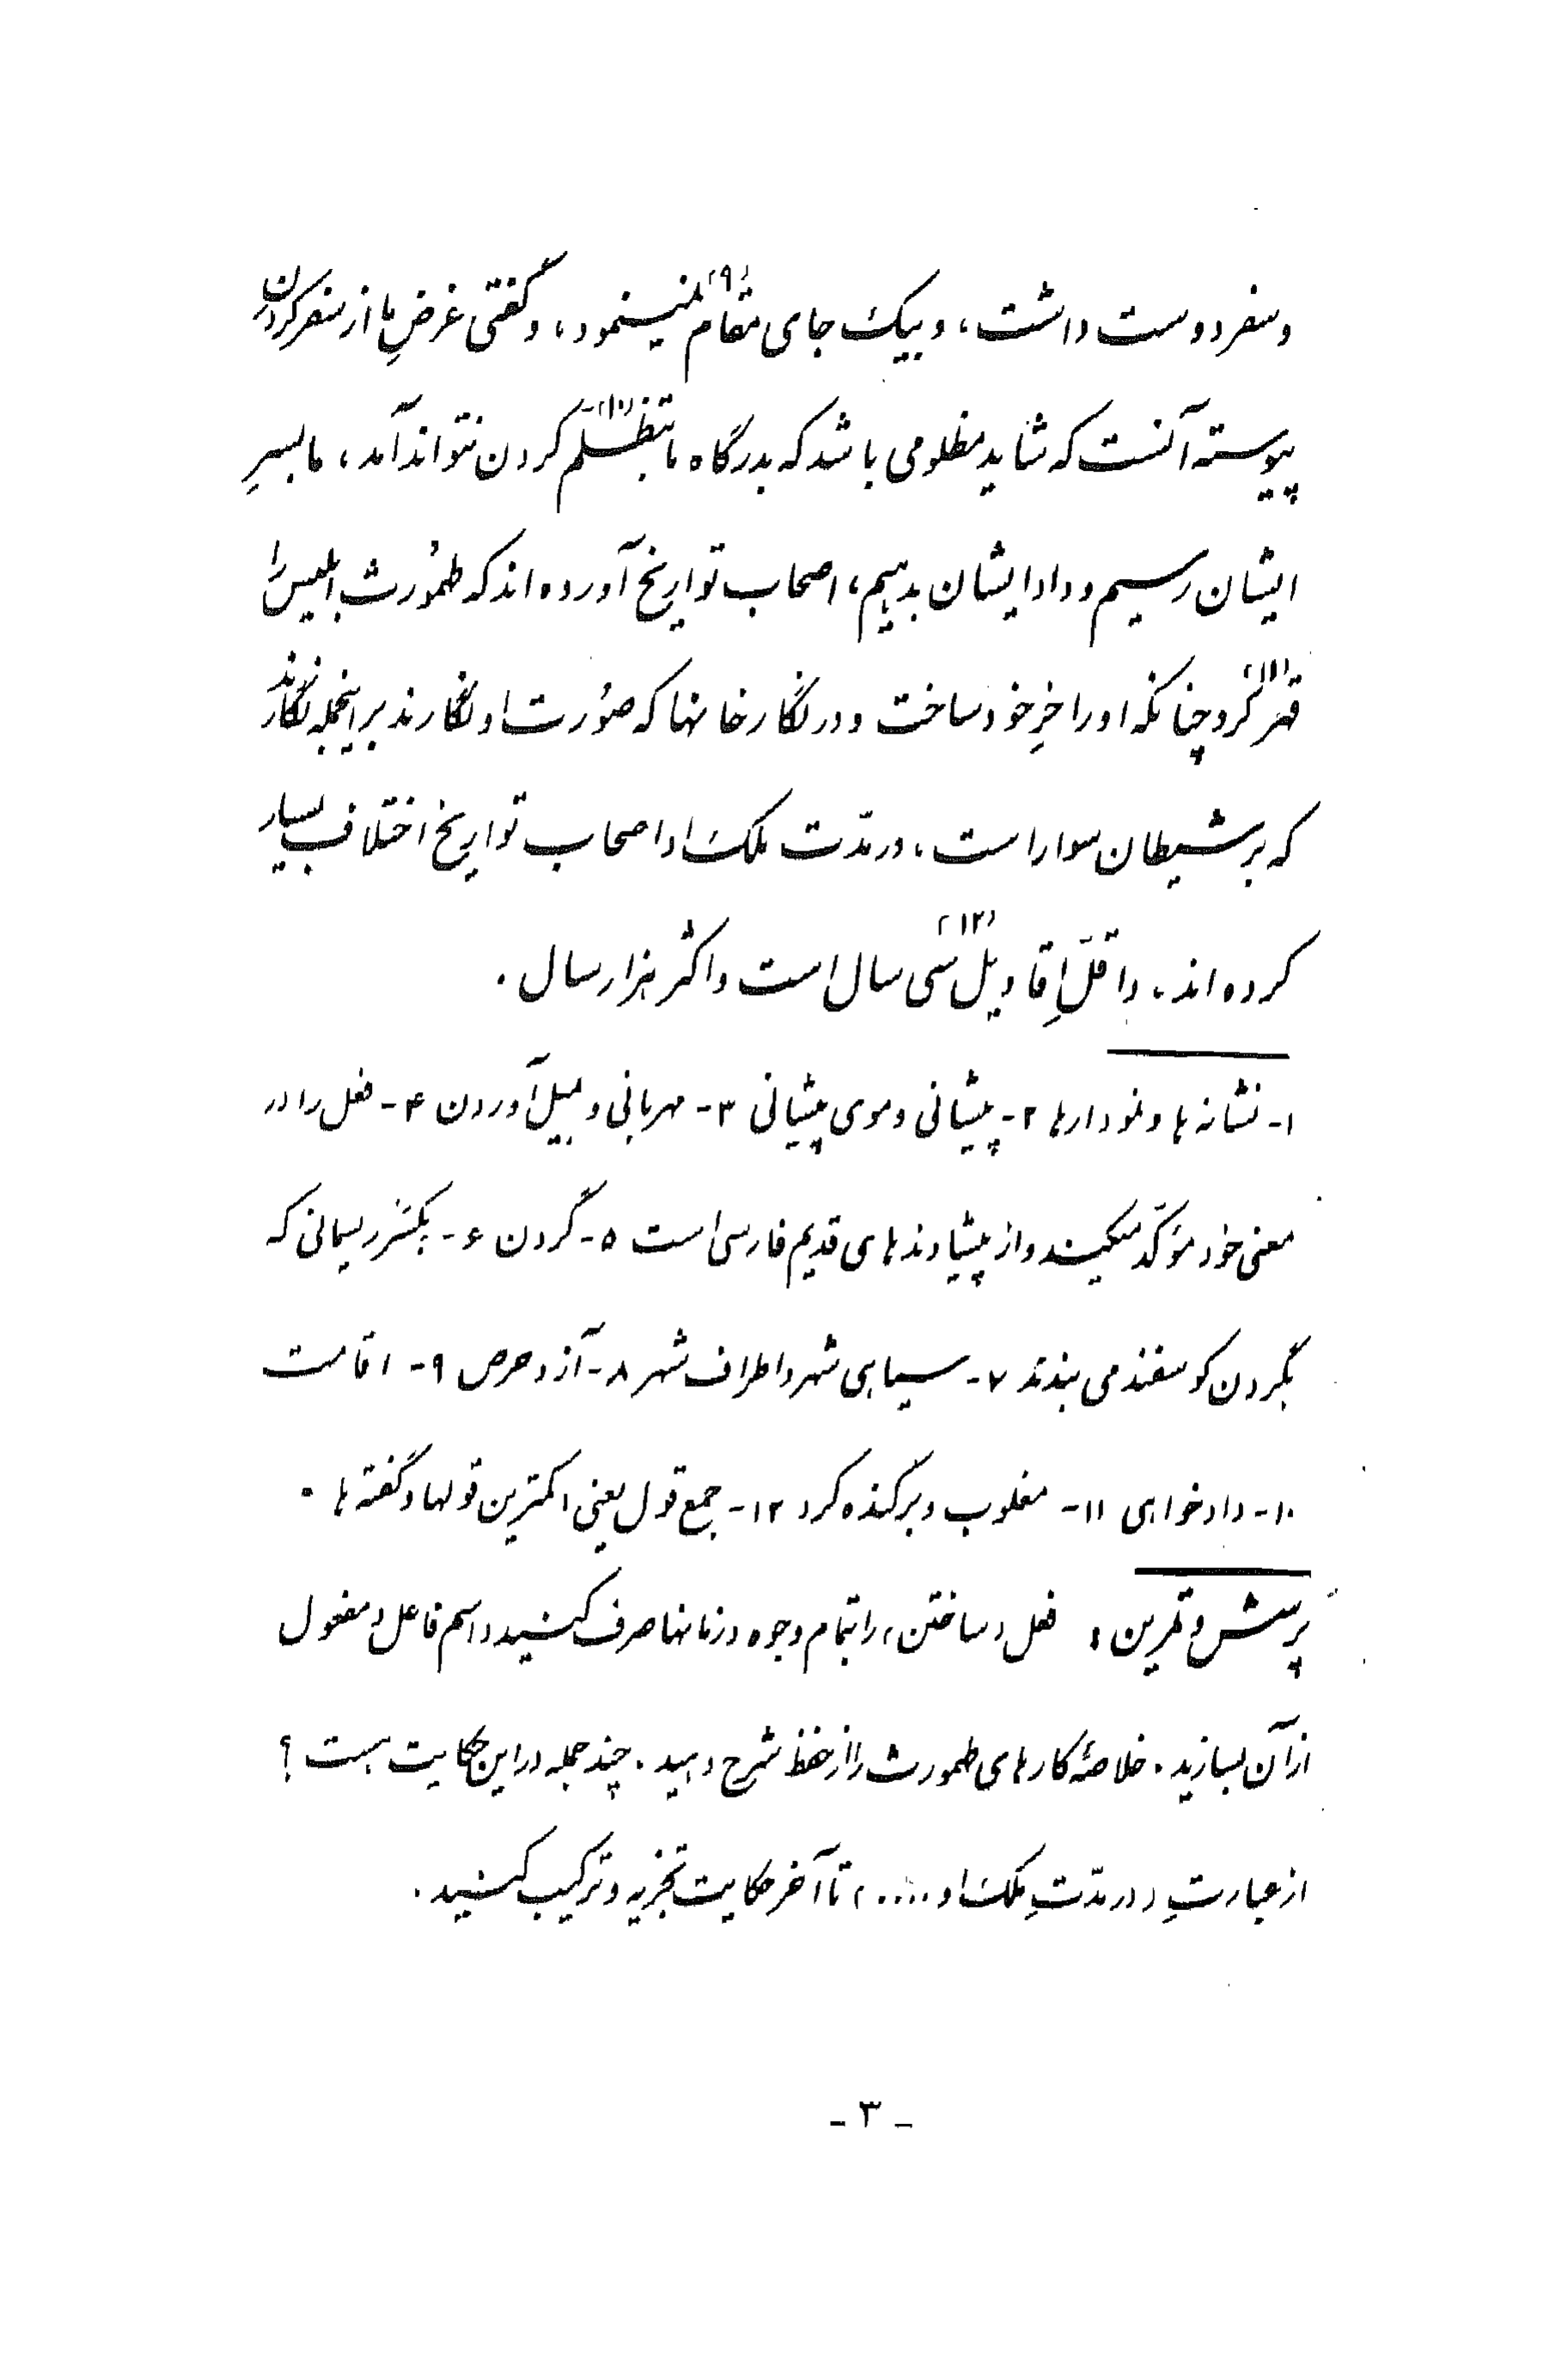 و سفر دوست داشت، و بیک جای مقام (۹) نمینمود، و گفتی غرضِ ما از سفر کردن
پیوسته آنست که شاید مظلومی باشد که بدرگاه ما بتظلّم (۱۰) کردن نتواند آمد، ما بسرِ
ایشان رسیم و داد ایشان بدهیم، اصحاب تواریخ آورده اند که طهمُورث ابلیس را
قهر (۱۱) کرد چنانکه او را خرِ خود ساخت و در نگارخانها که صُورت او نگارند بر اینجمله نگارند
که بر شیطان سوار است، در مدّت ملک او اصحاب تواریخ اختلاف بسیار
کرده اند، و اقلّ اِقاویل (۱۲) سی سال است و اکثر هزار سال .
۱- نشانه ها و نمودارها ۲- پیشانی و موی پیشانی ۳- مهربانی و بمیل آوردن ۴- فعل را در
معنی خود مؤکّد میکند و از پیشاوندهای قدیم فارسی است ۵- گردن ۶- یکسر ریسمانی که
بگردن گوسفند می بندند ۷- سیاهی شهر و اطراف شهر ۸- آز و حرص ۹- اقامت
۱۰- دادخواهی ۱۱- مغلوب و برکنده کرد ۱۲- جمع قول یعنی کمترین قولها و گفته ها .
پرسش و تمرین : فعل «ساختن» را بتمام وجوه و زمانها صرف کنید و اسم فاعل و مفعول
از آن بسازید . خلاصهٔ کارهای طهمورث را از حفظ شرح دهید . چند جمله در این حکایت هست ؟
از عبارتِ «در مدّتِ ملک او ....» تا آخر حکایت تجزیه و ترکیب کنید .
- ۳ -